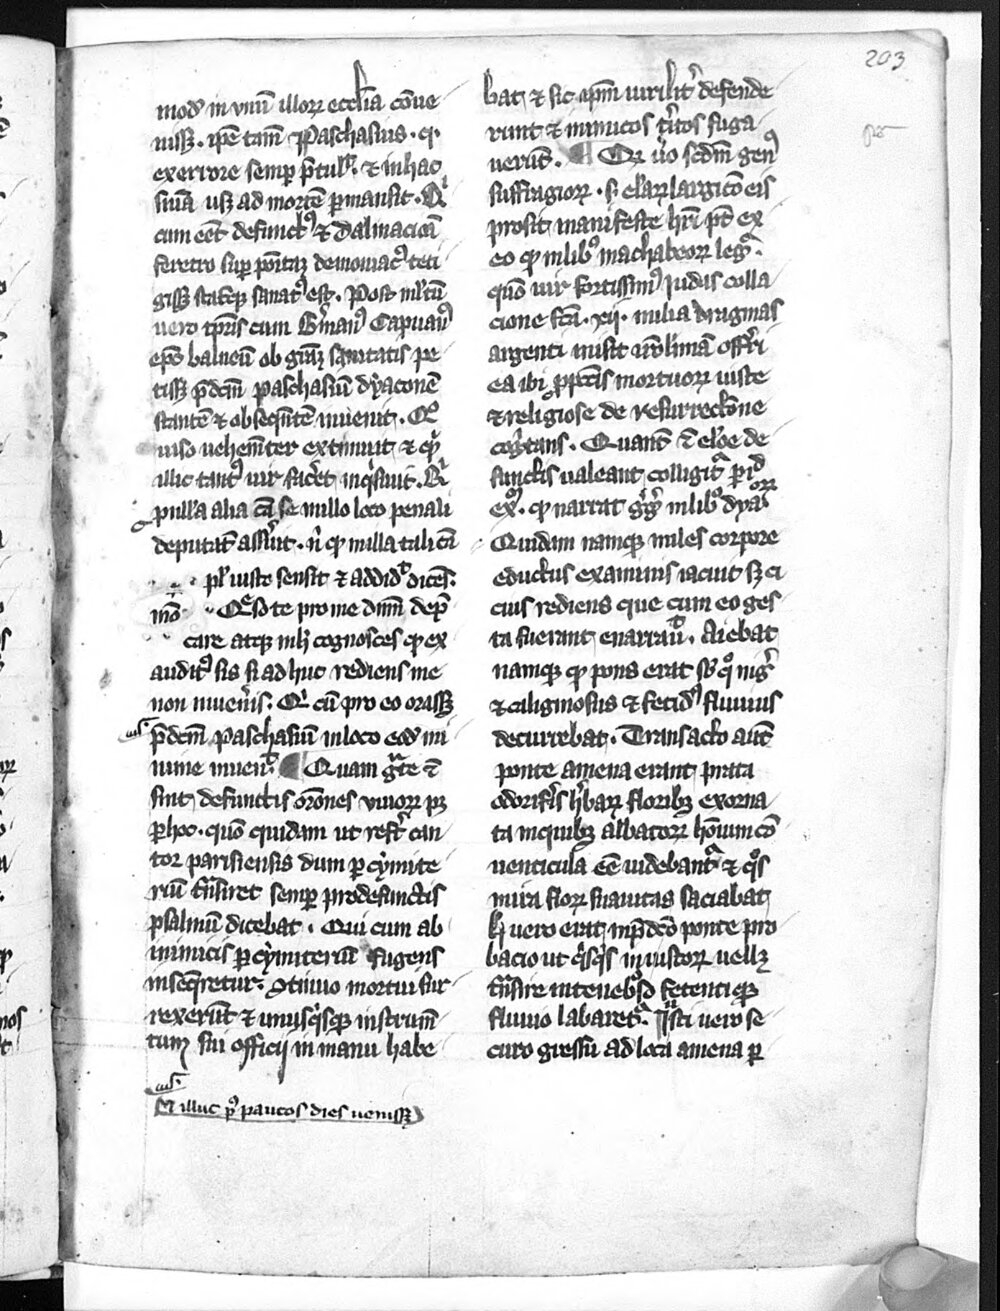 203
mod̄ in vnū illoꝝ eccl̄ia cōue
nissꝫ . ip̄e tam̄ Paschasius . q̄
ex errore semꝑ p̄tul̄ . ⁊ in hac
sn̄ia usqꝫ ad mortē ꝑmansit . Qͥ
cum eēt defunctꝰ ⁊ dalmaticā
feretro suꝑ poı̄taꝫ demoniacꝰ teti
gissꝫ statı̄qꝫ sanatꝰ est . Post ml̄tū
uero tp̄ris cum Gͥmanꝰ Capuanꝰ
ep̄s balneū ob gr̄aꝫ sanitatis pe
tissꝫ p̄dcm̄ paschasiū dyaconē
stantē ⁊ obseqn̄tē inuenit . Qͦ
uiso uehemēter extimuit ⁊ qͥd
illic tantꝰ uir facͤet inqͥsiuit . Qͥ
nulla alia cā se in illo loco penali
deputat̄ asserͥuit . nͥ qꝫ in illa tali cā
plꝰ iusto sensit ⁊ addid̄ dicēs .
mō Q̄so te pro me dn̄m dep̄
care atqꝫ in h̄ cognosces qꝫ ex
auditꝰ sis si ad huc rediens me
non inuenͥis . Qͥ cū pro eo orassꝫ
p̄dcm̄ paschasiū in loco eod̄ mi
nime inuen̄ . ¶ Quam grāte ⁊
sint defunctis orōnes viuoꝝ pꝫ
ꝑ hoc . quō quidam ut refͤt can
tor parisiensis dum ꝑ cymite
riū trāsiret semꝑ pro defunctis
psalmū dicebat . Qui cum ab
inimicis ꝑ cymiteriū fugens
inseqͤretur . ꝯtinuo mortui sur
rexerūt ⁊ unusqͥsqꝫ instrum̄
tum sui officij in manu habe
Et illuc pꝰ paucos dies uenissꝫ
bat ⁊ sic ip̄m uirilitͤ defende
runt ⁊ inimicos tͤritos fuga
uerūt . ¶ Qꝫ ūo scd̄m genꝰ
suffragioꝝ . sꝫ elaꝝ largicō eis
prosit manifeste hr̄i pt̄ ex
eo qꝫ in libͦ machabeoꝝ legͥ .
quō uir fortissimꝰ Judas colla
cione fcā . xij . milia dragmas
argenti misit iherlimā offͤri
ea ibi ꝓ pctīs mortuoꝝ iuste
⁊ religiose de resurrectōne
cogͥtans . Quant̄ ⁊ eloē de
functis ualeant colligitͬ ꝑ id
exͫ . qꝫ narrat gͤgͥ in libͦ dyaͦ
Quidam namqꝫ miles corpore
eductus exanimis iacuit sꝫ ci
cius rediens que cum eo ges
ta fuerant enarrauͥ . Aiebat
namqꝫ qꝫ pons erat sb̄ qͦ nigͤ
⁊ caliginosus ⁊ fetidꝰ fluuius
decurrebat . Transacto autē
ponte amena erant prata
odorifͤis hͤbaꝝ floribꝫ exorna
ta in quibꝫ albatoꝝ hoīum cō
uenticula eē uidebantͬ ⁊ qͦs
mira floꝝ suauitas saciabat
h̄ uero erat in p̄dcō ponte pro
bacio ut qͥsqͥs iniustoꝝ uellꝫ
trāsire in tenebͦso fetentiqꝫ
fluuio labaretͬ . Justi uero se
curo gressu ad loca amena ꝑ